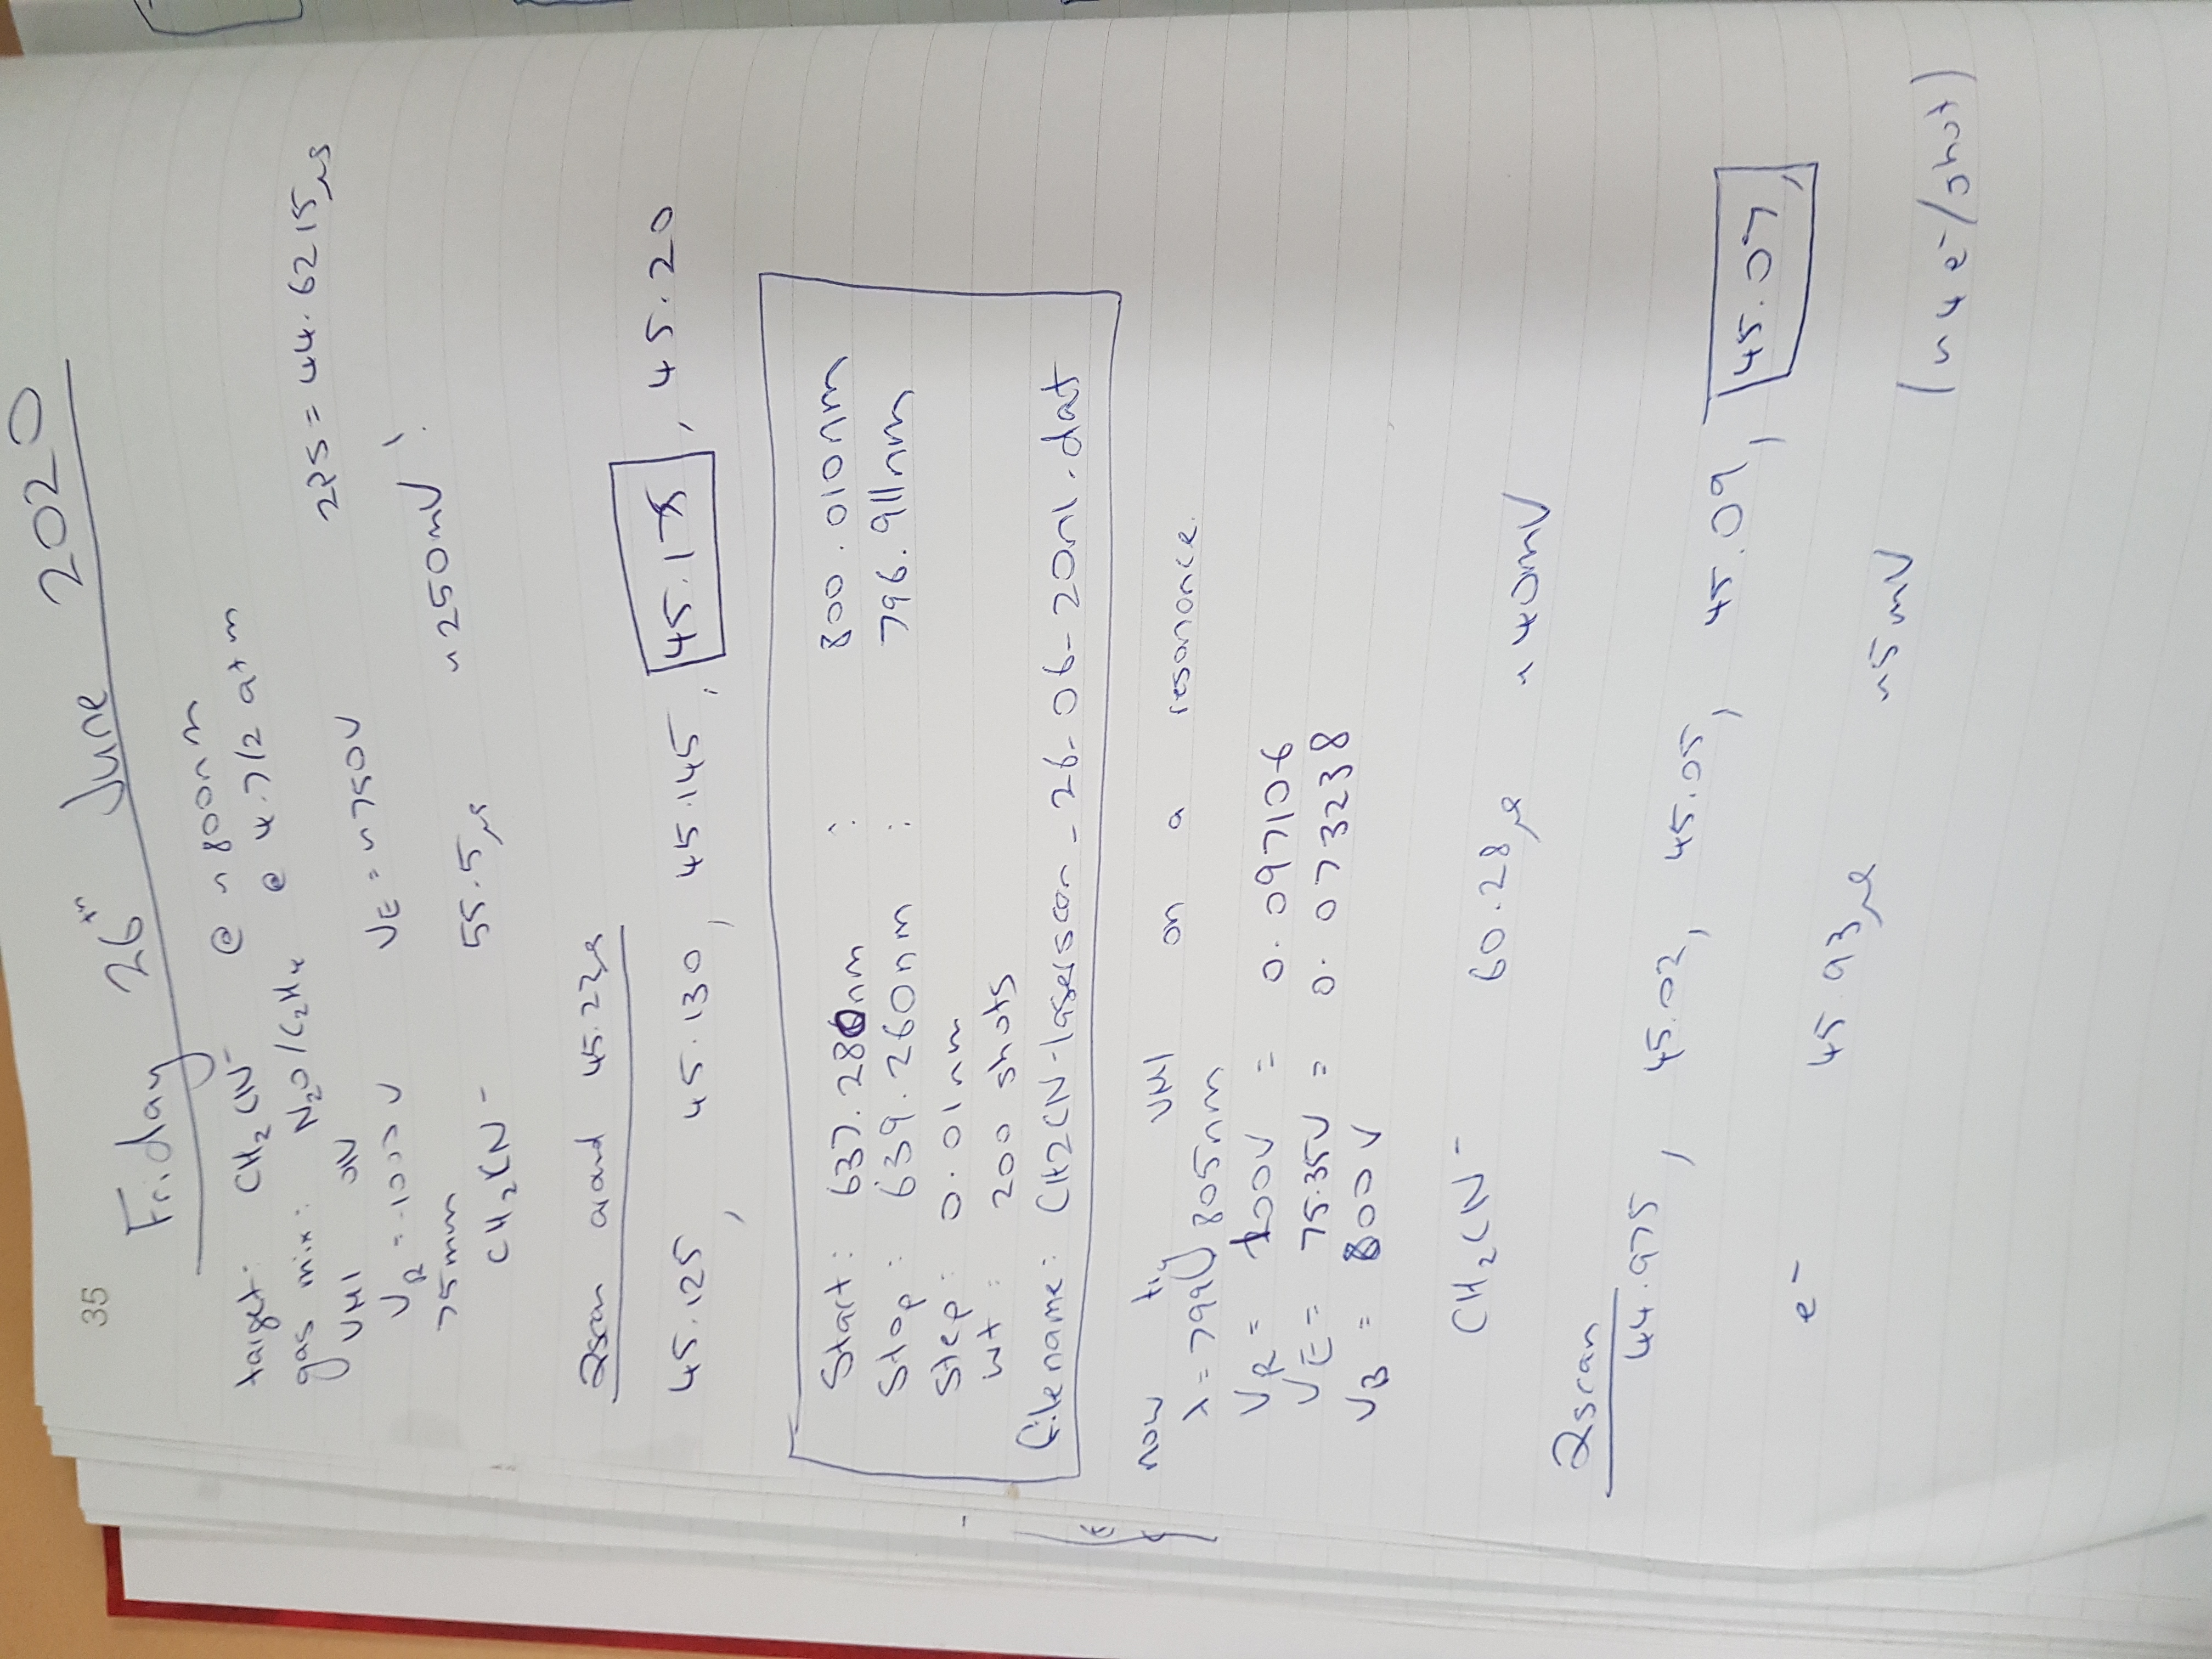 35
Friday 26th June 2020
target: CH2CN- @ ~800nm
gas mix: N2O/C2H4 @ 4.7/2 atm
VMI ON 2PS = 44.6215μs
VR = -1000V VE = ~750V
75mm
CH2CN- 55.5μs ~250mV!
Qscan around 45.22μs
45.125, 45.130, 45.145, 45.175, 45.20
Start: 637.280nm : 800.010nm
Stop: 639.260nm : 796.911nm
Step: 0.01nm
wt: 200 shots
filename: CH2CN-laserscan_26-06-20n1.dat
now try VMI on a resonance.
λ = 799.805nm
VR = 100V = 0.097106
VE = 75.35V = 0.073238
VB = 600V
CH2CN- 60.28μs ~40mV
Qscan
44.975, 45.02, 45.05, 45.09, 45.07,
e- 45.93μs ~5mV (~4e-/shot)